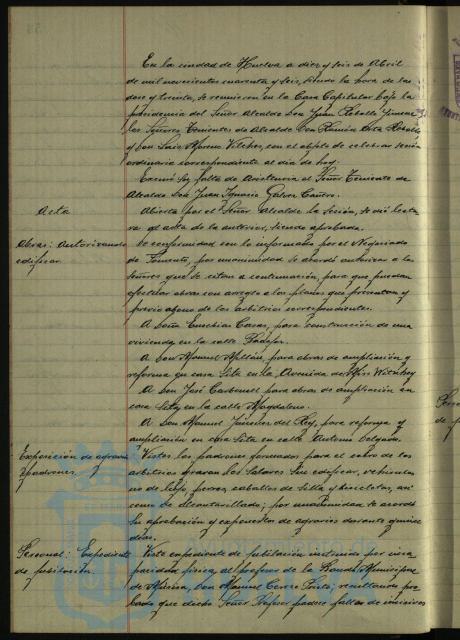 En la ciudad de Huelva a diez y seis de Abril
de mil novecientos cuarenta y seis, siendo la hora de las
doce y treinta, se reunieron en la Casa Capitular bajo la
presidencia del Señor Alcalde Don Juan Rebollo Jimenez
los Señores Tenientes de Alcalde Don Ramón
y Don Luis Moreno Vilches, con el objeto de celebrar sesión
ordinaria correspondiente al día de hoy.
falta de Asistencia el Señor Teniente de
Alcalde Don Juan Ignacio Galvez Cañero.
Acta
Abierta por el Señor Alcalde la Sesión, se dió lectu
ra al acta de la anterior, siendo aprobada.
Obras: Autorizando
edificar
De conformidad con lo informado por el Negociado
de Fomento, por unanimidad se acordó autorizar a los
señores que se citan a continuación, para que puedan
efectuar obras con arreglo a los planos que presentan y
previo abono de los arbitrios correspondientes.
A Doña Casas, para construcción de una
vivienda en la calle
A Don Manuel Millán, para obras de ampliación y
reforma en casa Sita en la Avenida de Miss Whitney
A Don José Carbonell para obras de ampliación en
casa Sita en la calle Magdalena.
A Don Manuel Jimenez del Rey, para reforma y
ampliación en casa Sita en calle Antonio Delgado.
Exposición de agravios
padrones.
Vistos los padrones formados para el cobro de los
arbitrios gravan los Solares Sin edificar, vehiculos
de lujo, perros, caballos de Silla y bicicletas, así
como de Alcantarillado; por unanimidad se acordó
Su aprobación y exponerlos de agravios durante quince
dias.
Personal: Expediente
de jubilación.
Visto expediente de jubilación instruido por inca
pacidad física, al profesor de la Banda Municipal
de Música, Don Manuel Cerezo resultando pro
bado que dicho Señor Profesor padece faltas de incisivos